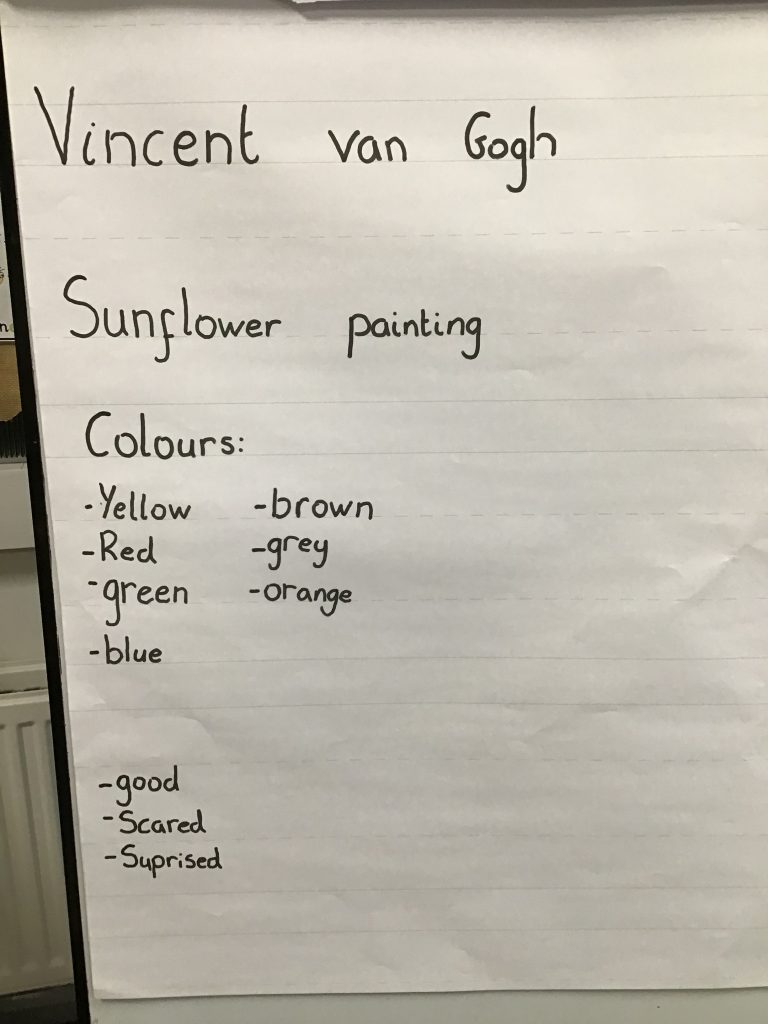 Vincent van Gogh
Sunflower painting
Colours:
-Yellow -brown
-Red -grey
-green -orange
-blue
-good
-Scared
-Suprised